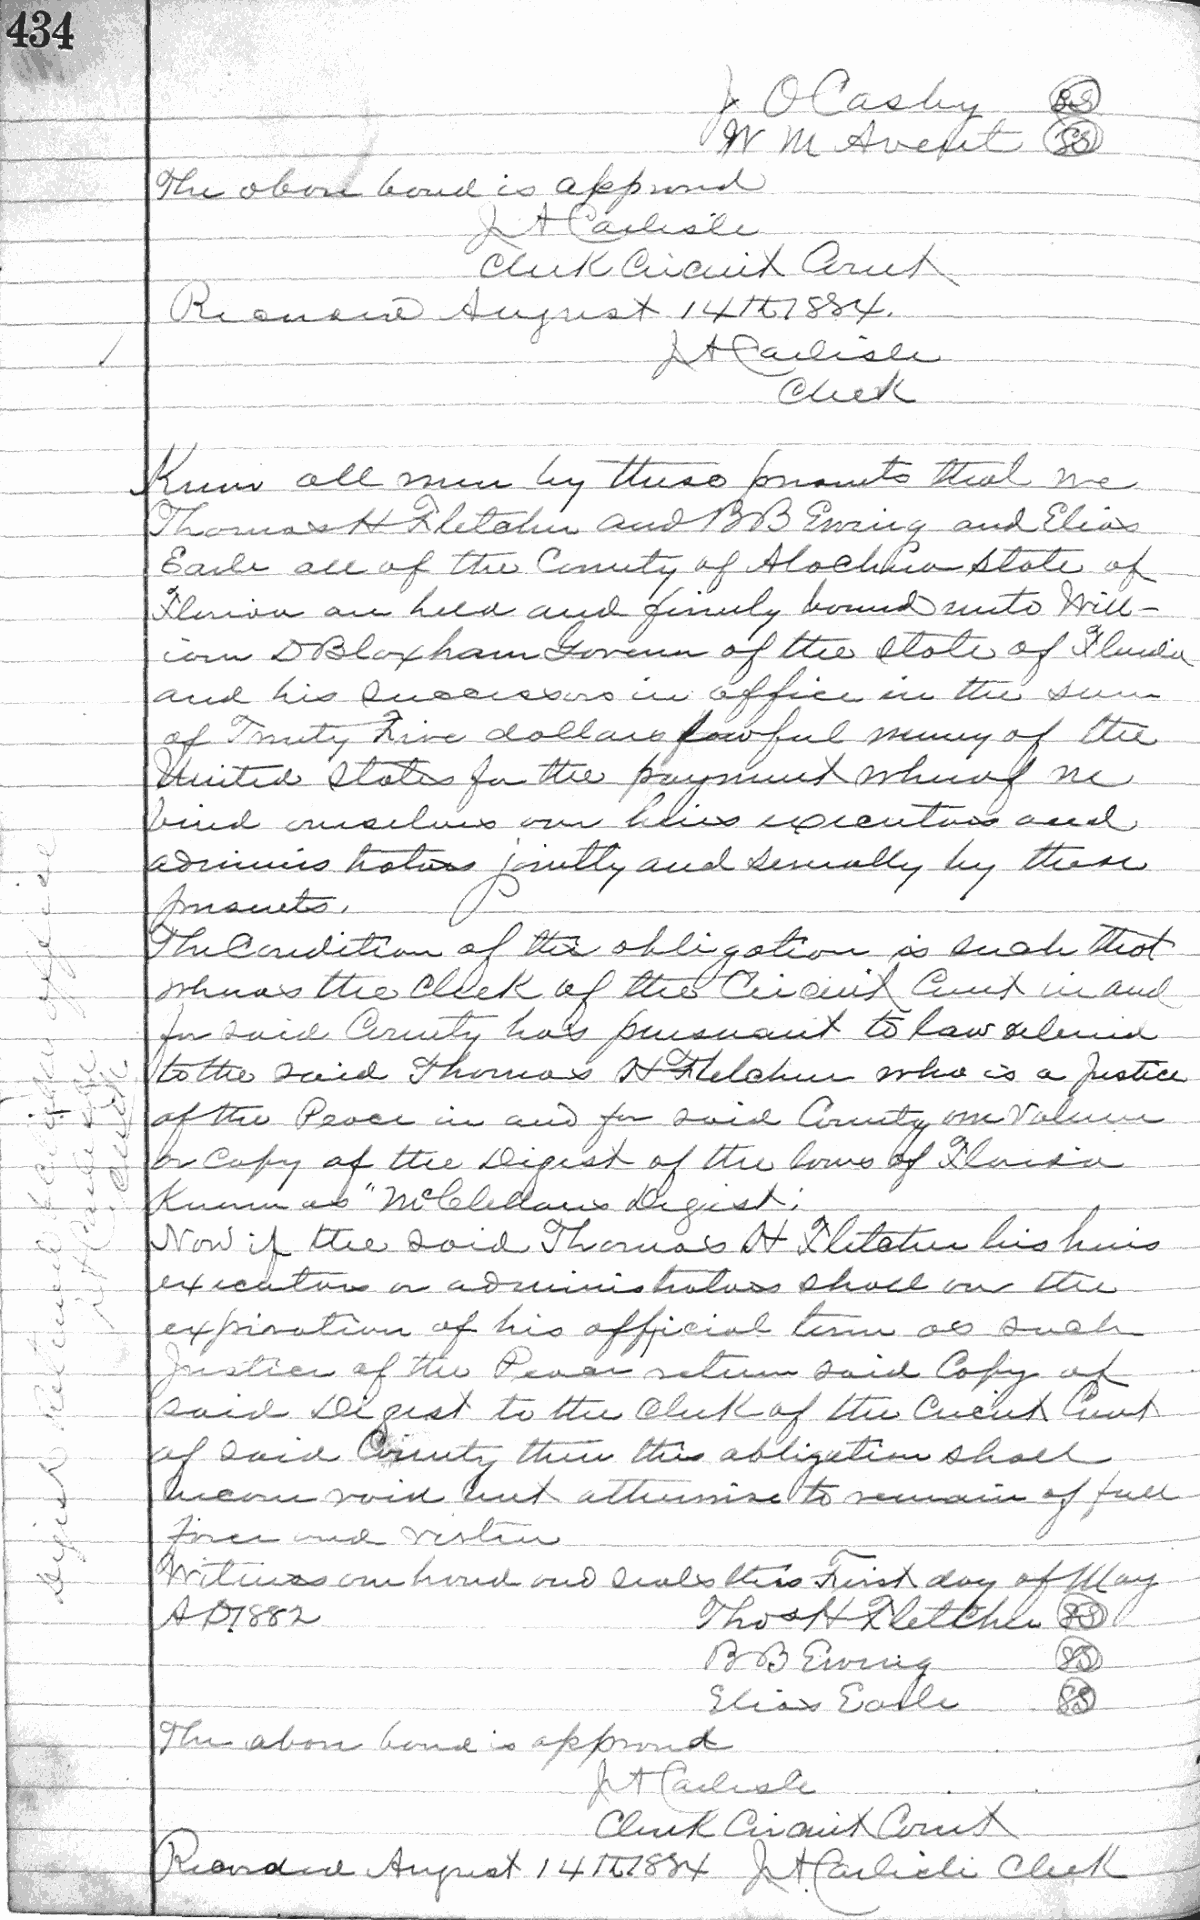 434
J. O Casby SS
W M Avent SS
The above bond is approved
J A Carlisle
Clerk Circuit Court
Recorded August 14th 1884.
J A Carlisle
Clerk
Know all men by these presents that we
Thomas H Fletcher and B B Ewing and Elias
Earle all of the County of Alachua State of
Florida are held and firmly bound unto Will-
iam D Bloxham Governor of the State of Florida
and his successors in office in the sum
of Twenty Five dollars lawful money of the
United States for the payment whereof we
bind ourselves our heirs executors and
adminis trators jointly and severally by these
presents.
The Condition of this obligation is such that
whereas the Clerk of the Circuit Court in and
for said County has pursuant to law delivered
to the said Thomas H Fletcher who is a Justice
of the Peace in and for said County one Volume
or Copy of the Digest of the laws of Florida
Known as "McClellans Digest".
Now if the said Thomas H Fletcher his heirs
executors or administrators shall on the
expiration of his official term as such
Justice of the Peace return said Copy of
said Digest to the Clerk of the Circuit Court
of said County then this obligation shall
become void but otherwise to remain of full
force and virtue
Witness our hand and seals this First day of May
A D 1882 Thos H Fletcher SS
B B Ewing SS
Elias Earle SS
The above bond is approved
J A Carlisle
Clerk Circuit Court
Recorded August 14th 1884 J. A. Carlisle Clerk
Digest Returned office
J A Carlisle
Clerk